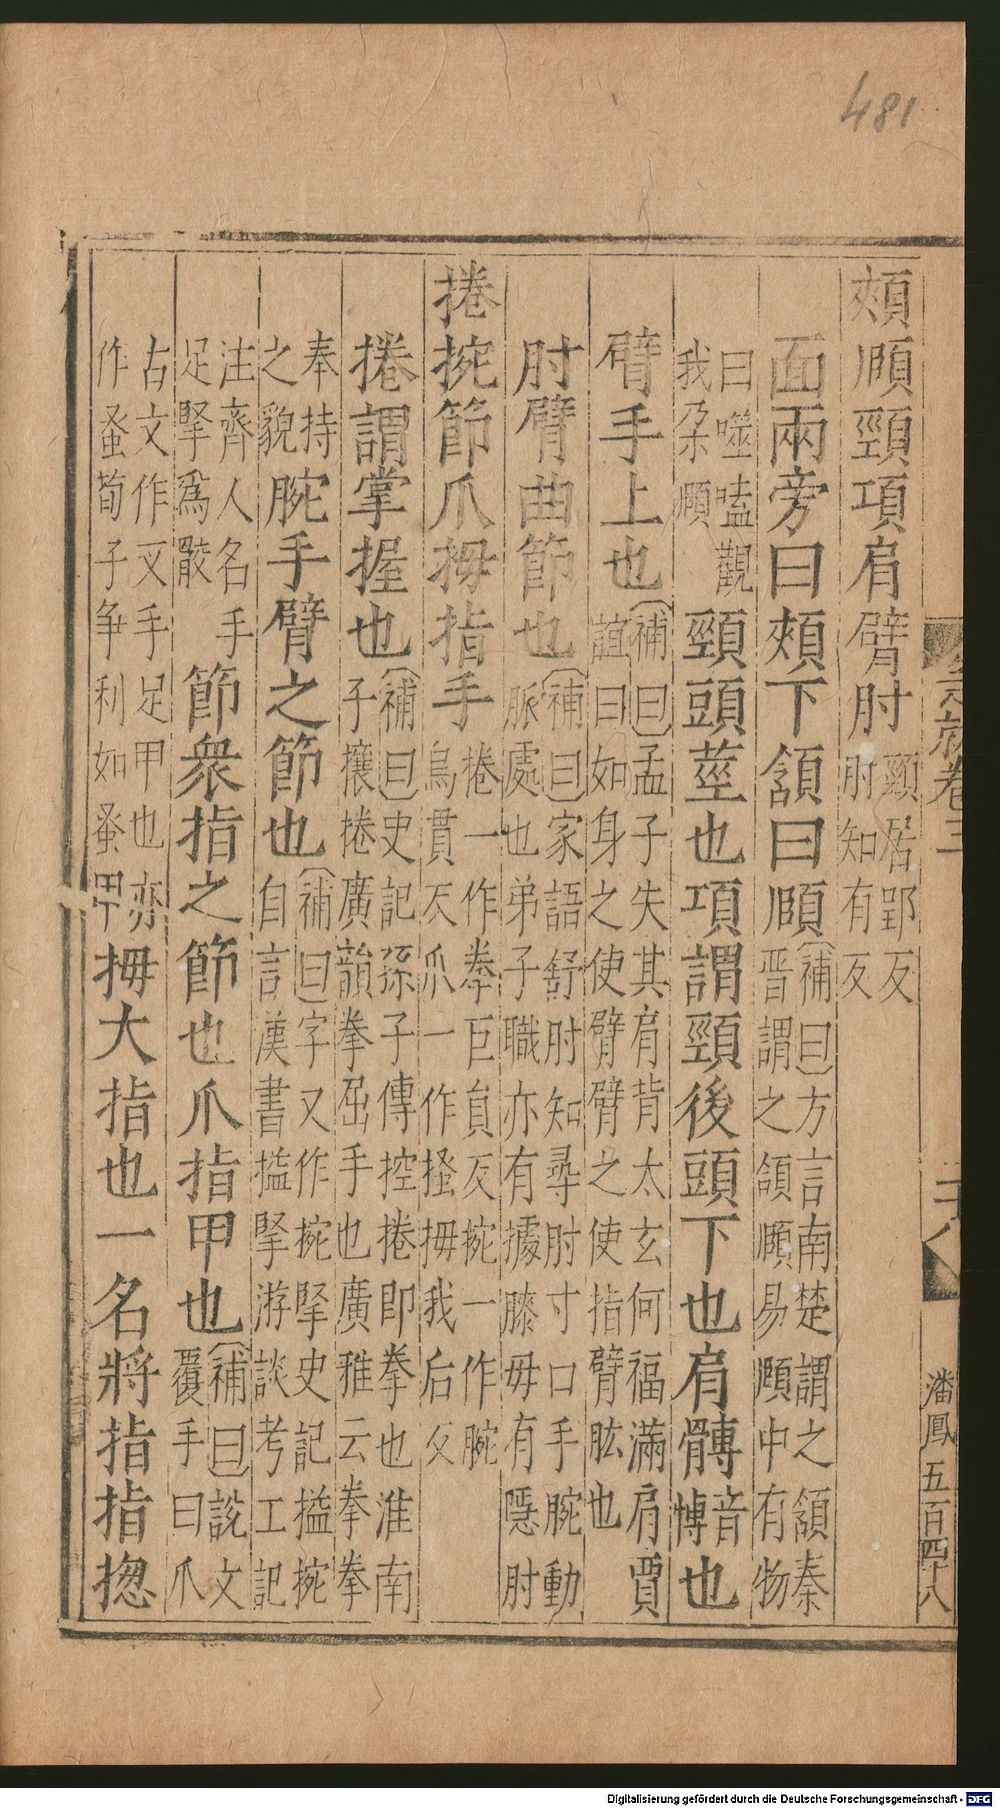 481
頰頤頸項肩臂肘頸居郢反肘知有反
面兩旁曰頰下頷曰頤補曰方言南楚謂之頷秦晉謂之頷頤易頤中有物
曰噬嗑觀我朶頤頸頭莖也項謂頸後頭下也肩髆音博也
臂手上也補曰孟子失其肩背太玄何福滿肩賈誼曰如身之使臂臂之使指臂肱也
肘臂曲節也補曰家語舒肘知尋肘寸口手腕動脈處也弟子職亦有據膝毋有隱肘
捲捥節爪拇指手捲一作拳巨負反捥一作腕烏貫反爪一作搔拇我后反
捲謂掌握也補曰史記孫子傳控捲即拳也淮南子攘捲廣韻拳屈手也廣雅云拳拳
奉持之貌腕手臂之節也補曰字又作捥掔史記搤捥自言漢書搤掔游談考工記
注齊人名手足掔為骹節衆指之節也爪指甲也補曰說文覆手曰爪
古文作叉手足甲也亦作蚤荀子爭利如蚤甲拇大指也一名將指指揔
急就卷三
二十八
潘鳳
五百四十八
Digitalisierung gefördert durch die Deutsche Forschungsgemeinschaft - DFG